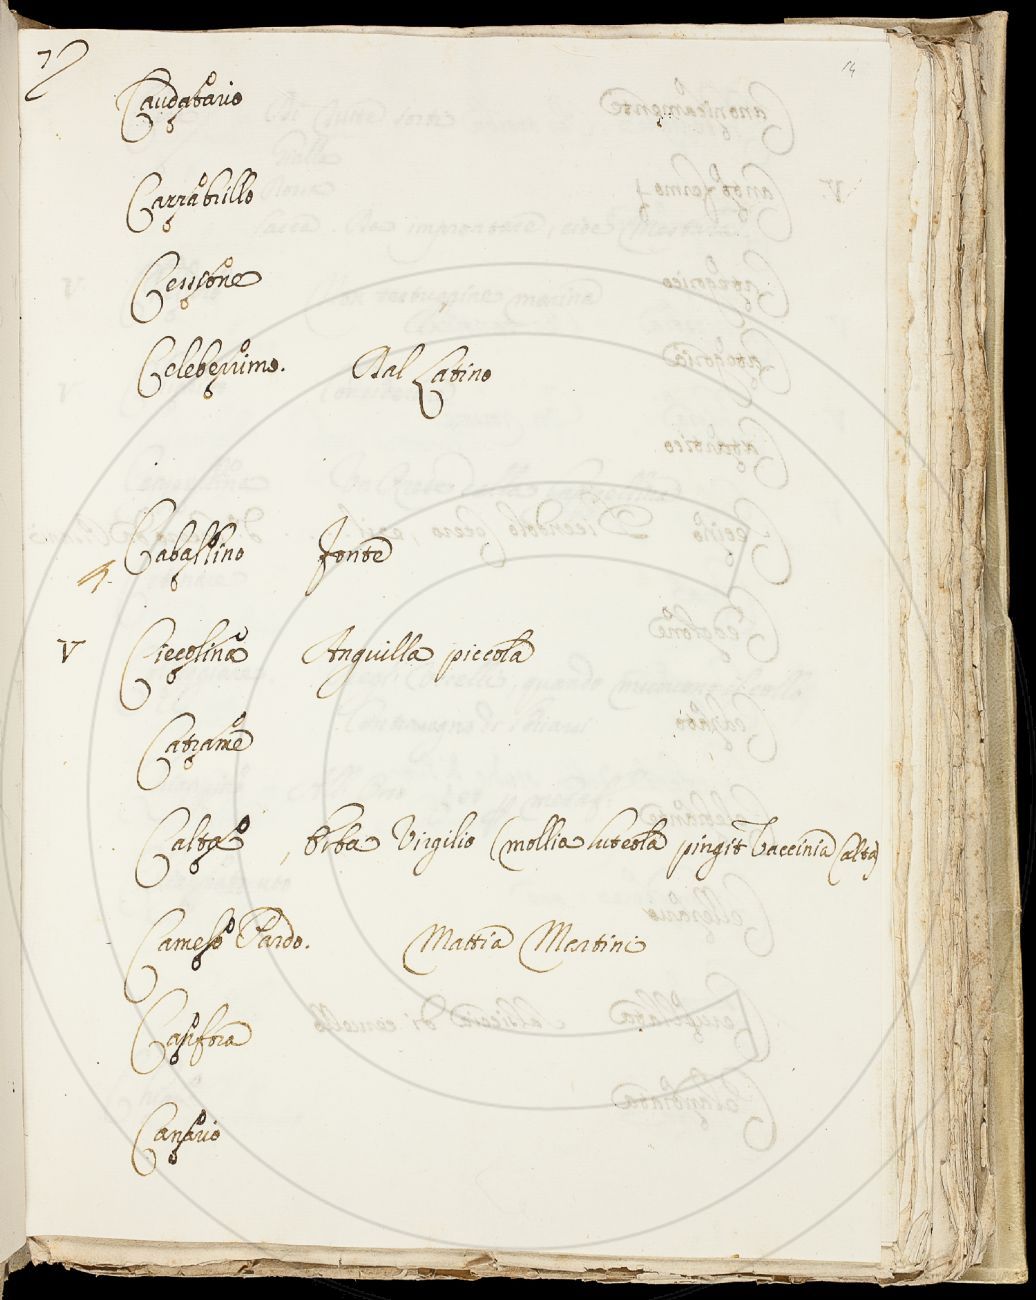 14
Caudatario
Carratrillo
Cessone
Celeberrimo. Dal Latino
Caballino fonte
V Ciecolina Anguilla piccola
Catrame
Calta, erba Virgilio (mollia luteola pingit Vaccinia Calta)
Camelo Pardo. Mattia Martini
Casifora
Canario